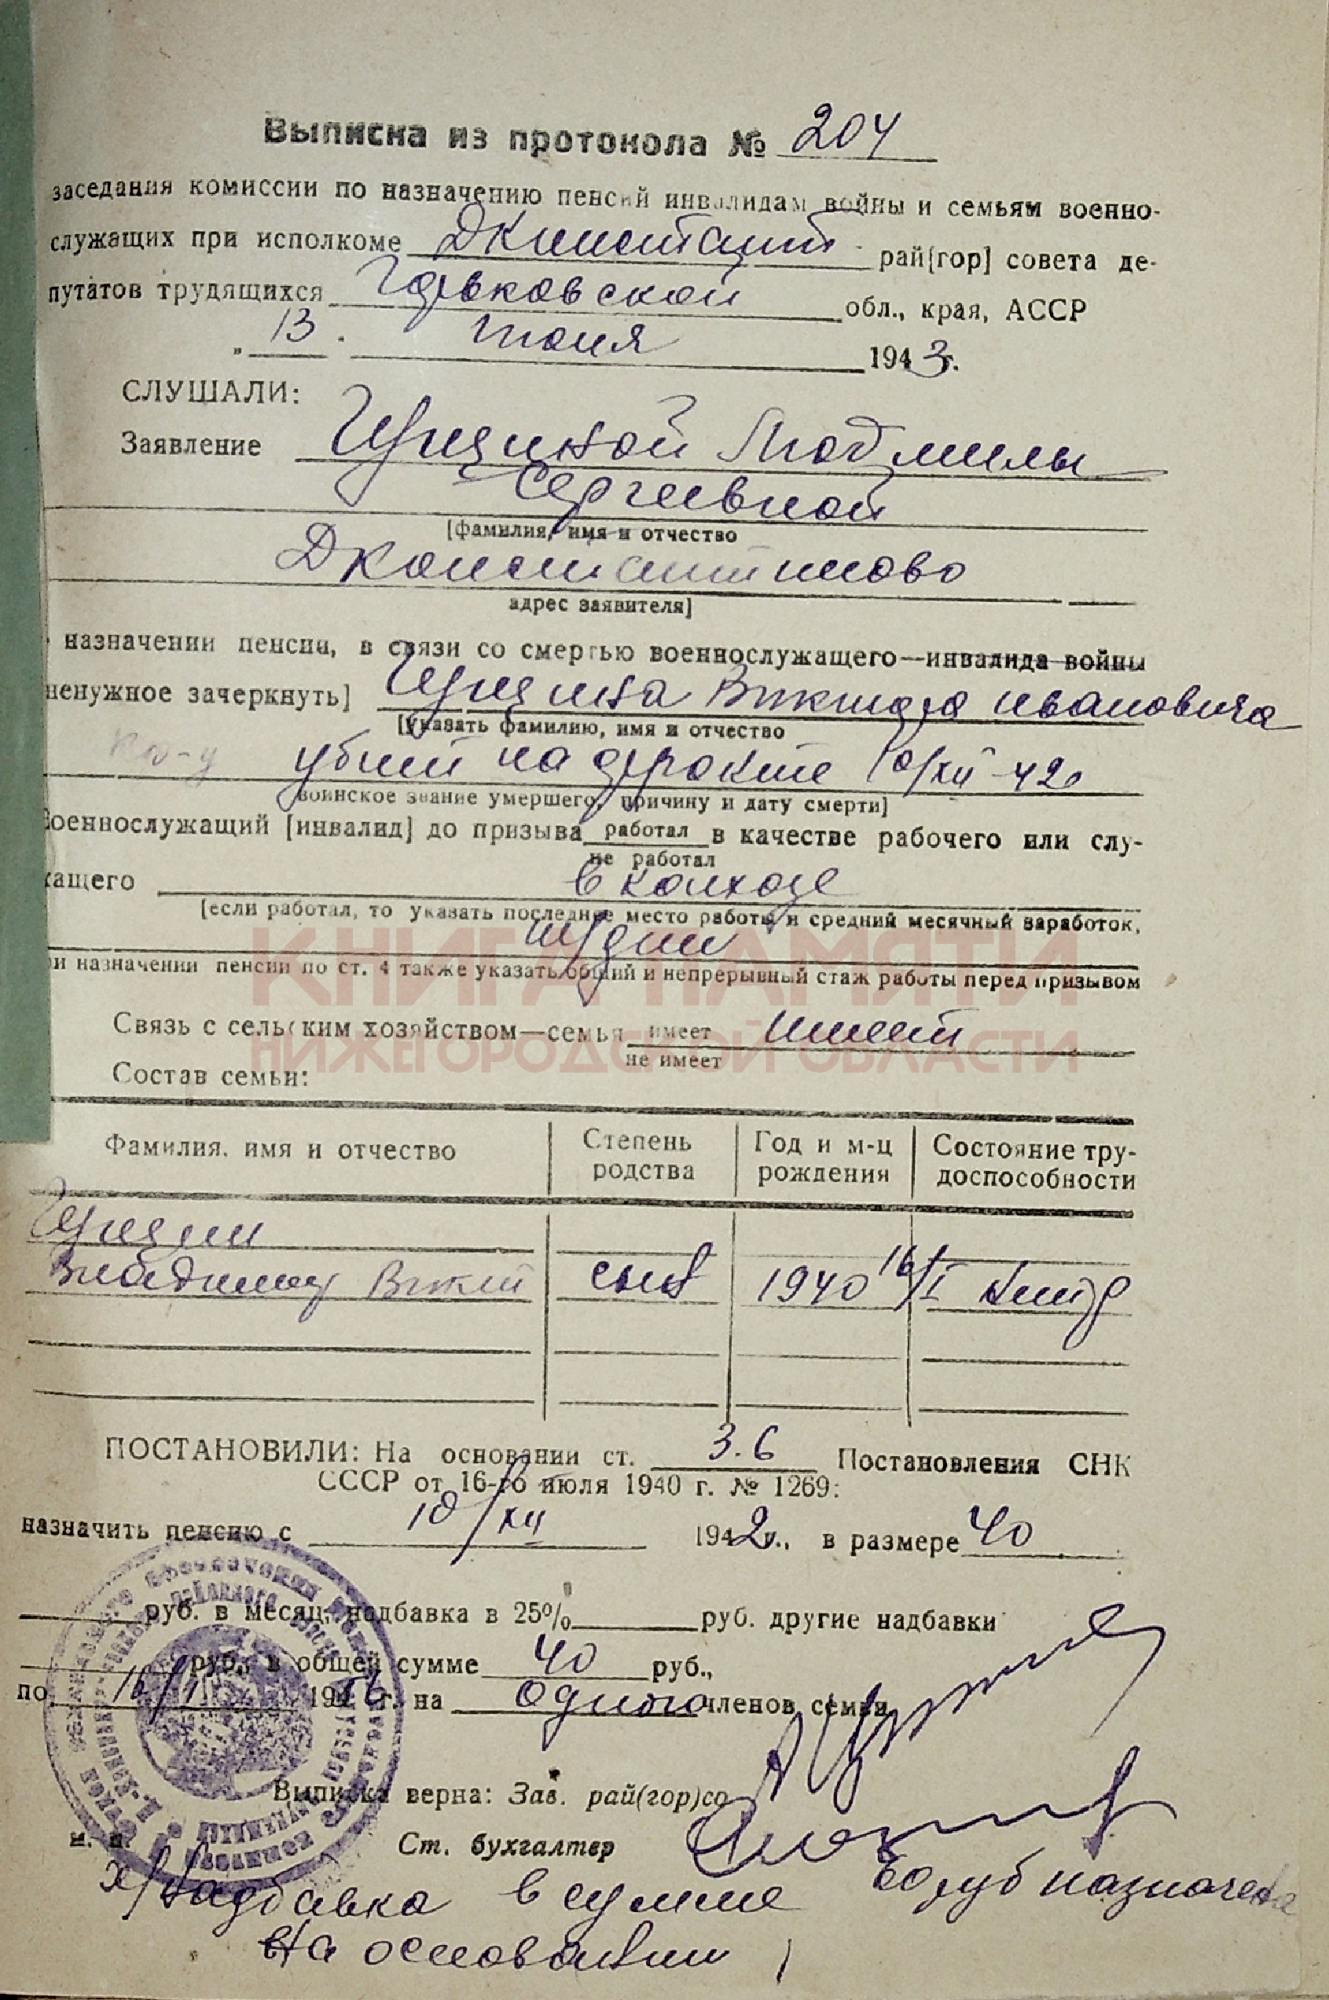 Выписка из протокола № 204
заседания комиссии по назначению пенсий инвалидам войны и семьям военно-
служащих при исполкоме Дконстант рай[гор] совета де-
путатов трудящихся Горьковской обл., края, АССР
" 13 . Июня 1943 г.
СЛУШАЛИ:
Заявление Людмилы
Сергеевной
[фамилия, имя и отчество
Дконстантиново
адрес заявителя]
назначении пенсии, в связи со смертью военнослужащего—инвалида войны
ненужное зачеркнуть] Виктора Ивановича
[указать фамилию, имя и отчество
кр-ц убит на фронте 10/XII-42г
воинское звание умершего, причину и дату смерти]
Военнослужащий [инвалид] до призыва работал в качестве рабочего или слу-
не работал
жащего в колхозе
[если работал, то указать последнее место работы и средний месячный заработок,
ри назначении пенсии по ст. 4 также указать общий и непрерывный стаж работы перед призывом
КНИГА ПАМЯТИ
НИЖЕГОРОДСКОЙ ОБЛАСТИ
Связь с сельским хозяйством—семья имеет имеет
не имеет
Состав семьи:
Фамилия, имя и отчество Степень родства Год и м-ц рождения Состояние тру-доспособности
Владимир Викт сын 1940 16/I
ПОСТАНОВИЛИ: На основании ст. 3.6 Постановления СНК
СССР от 16-го июля 1940 г. № 1269:
назначить пенсию с 10/XII 1942 г., в размере 40
руб. в месяц, надбавка в 25% руб. другие надбавки
руб., в общей сумме 40 руб.,
по 16/I 1956 г. на одного членов семьи
Выписка верна: Зав. рай(гор)со
м. п. Ст. бухгалтер
х/ Надбавка в сумме руб назначена
на основании